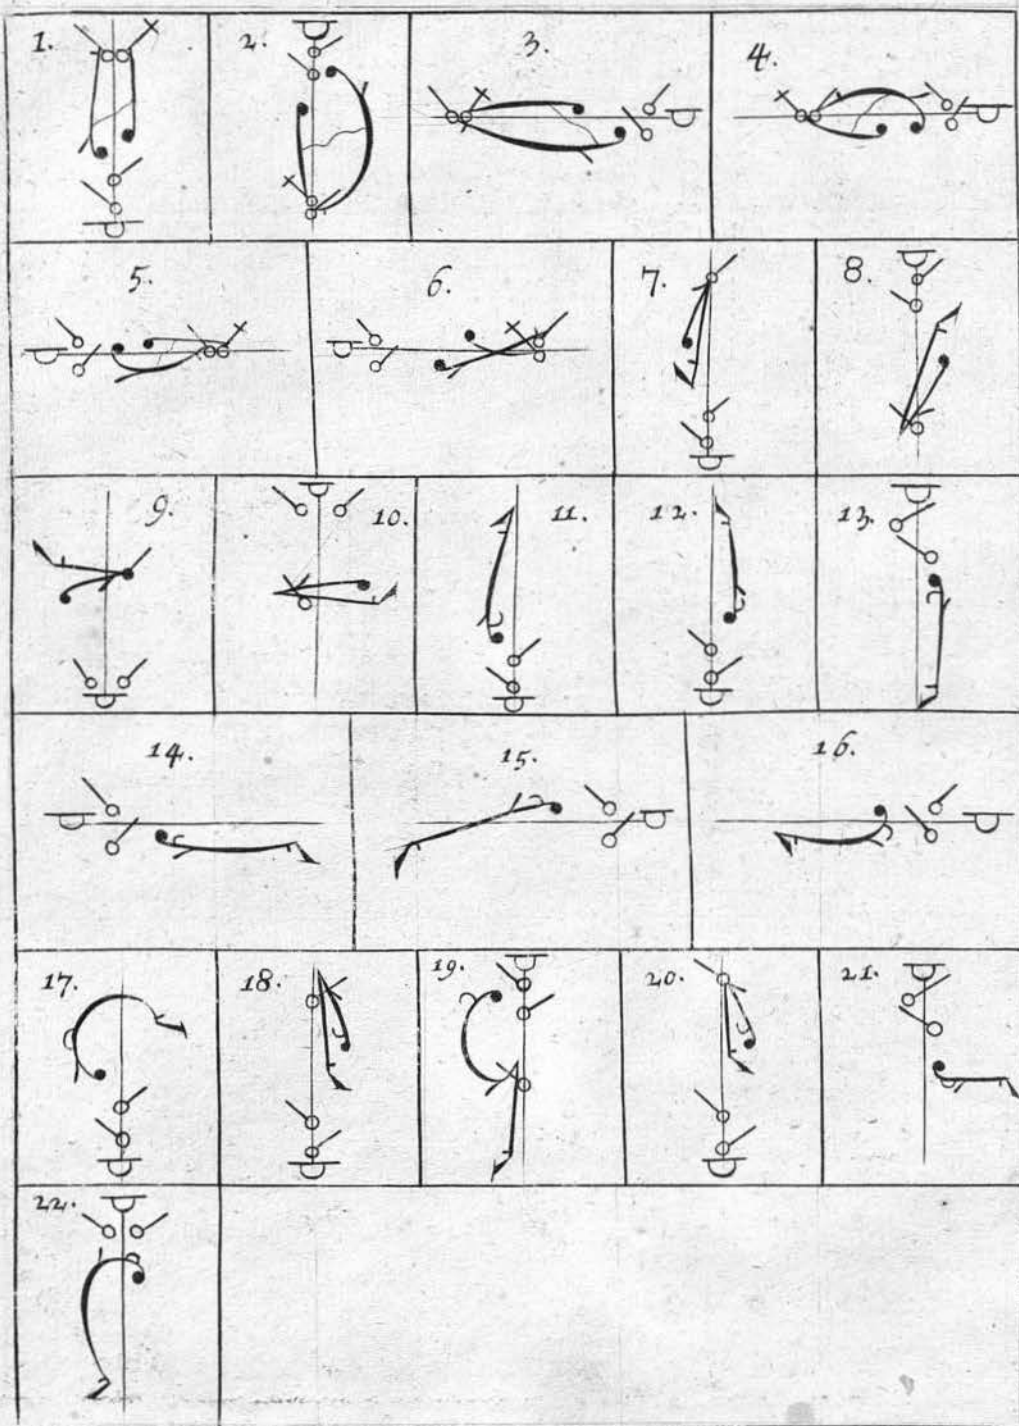 1. 2. 3. 4.
5. 6. 7. 8.
9. 10. 11. 12. 13.
14. 15. 16.
17. 18. 19. 20. 21.
22.